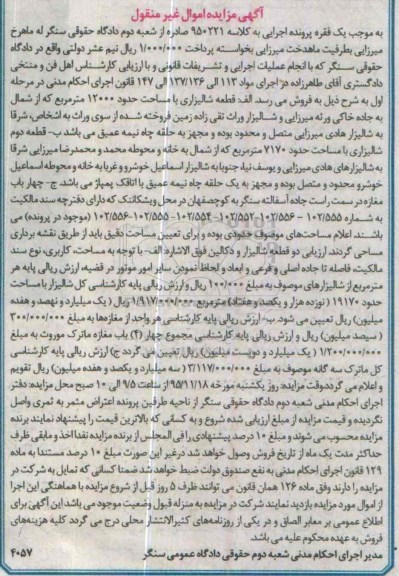 آگهی مزایده اموال غیر منقول
به موجب یک فقره پرونده اجرایی به کلاسه ۹۵۰۲۲۱ صادره از شعبه دوم دادگاه حقوقی سنگر له ماهرخ
میرزایی بطرفیت ماهدخت میرزایی بخواسته پرداخت ۱/۰۰۰/۰۰۰ ریال نیم عشر دولتی واقع در دادگاه
حقوقی سنگر که با انجام عملیات اجرایی و تشریفات قانونی و با ارزیابی کارشناس اهل فن و منتخی
دادگستری آقای طاهرزاده در اجرای مواد 113 الی ۱۳۷/۱۳۶ الی ۱۴۷ قانون اجرای احکام مدنی در مرحله
اول به شرح ذیل به فروش می رسد. الف: قطعه شالیزاری با مساحت حدود ۱۲۰۰۰ مترمربع که از شمال
به جاده خاکی ورثه میرزایی و شالیزار وراث تقی زاده زمین فروخته شده از سوی وراث به اشخاص، شرقا
به شالیزار هادی میرزایی متصل و محدود بوده و مجهز به حلقه چاه نیمه عمیق می باشد ب- قطعه دوم
شالیزاری با مساحت حدود ۷۱۷۰ مترمربع که از شمال به خانه و محوطه محمد و محمدرضا میرزایی شرقا
به شالیزارهای هادی میرزایی و یوسف نیا، جنوبا به شالیزار اسماعیل خوشرو و غربا به خانه و محوطه اسماعیل
خوشرو محدود و متصل بوده و مجهز به یک حلقه چاه نیمه عمیق با اتاقک پمپاژ می باشد. ج- چهار باب
مغازه در سمت راست جاده آسفالته سنگر به کوچصفهان در محل ویشکانتک که دارای دفترچه سند مالکیت
به شماره ۱۰۲/۵۵۵ - ۱۰۲/۵۵۶ - ۱۰۲/۵۵۲- ۱۰۲/۵۵۴- ۱۰۲/۵۵۵-۱۰۲/۵۵۶ (موجود در پرونده) می
باشند اعلام مساحت‌های موصوف حدودی بوده و برای تعیین مساحت دقیق باید از طریق نقشه برداری
مساحی گردند. ارزیابی دو قطعه شالیزار و دکالین فوق الاشاره: الف- با توجه به مساحت، کاربری، نوع سند
مالکیت، فاصله تا جاده اصلی و فرعی و ابعاد و لحاظ نمودن سایر امور موثور در قضیه، ارزش ریالی پایه هر
مترمربع از شالیزارهای موصوف به مبلغ ۱۰۰/۰۰۰ ریال و ارزش ریالی پایه کارشناسی کل شالیزار با مساحت
حدود ۱۹۱۷۰ (نوزده هزار و یکصد و هفتاد) مترمربع ۱/۹۱۷/۰۰۰/۰۰۰ ریال ( یک میلیارد و نهصد و هفده
میلیون) ریال تعیین می شود. ب- ارزش ریالی پایه کارشناسی هر واحد از مغازه‌ها به مبلغ ۳۰۰/۰۰۰/۰۰۰
( سیصد میلیون) ریال و ارزش ریالی پایه کارشناسی مجموع چهار (۴) باب مغازه ماترک موروث به مبلغ
۱/۲۰۰/۰۰۰/۰۰۰ ( یک میلیارد و دویست میلیون) ریال تعیین می گردد ج) ارزش ریالی پایه کارشناسی
کل ماترک سه گانه موصوف به مبلغ ۳/۱۱۷/۰۰۰/۰۰۰ ( سه میلیارد و یکصد و هفده میلیون) ریال تقویم
و اعلام می گردد وقت مزایده: روز یکشنبه مورخه ۹۵/۱۱/۱۸ از ساعت ۹/۵ الی ۱۰ صبح محل مزایده: دفتر
اجرای احکام مدنی شعبه دوم دادگاه حقوقی سنگر از ناحیه طرفین پرونده اعتراض مثمر به ثمری واصل
نگردیده و قیمت مزایده از مبلغ ارزیابی شده شروع و به کسانی که بالاترین قیمت را پیشنهاد نمایند برنده
مزایده محسوب می شوند و مبلغ ۱۰ درصد پیشنهادی را فی المجلس از برنده مزایده نقدا اخذ و مابقی ظرف
حداکثر مدت یک ماه از تاریخ فروش وصول خواهد شد در غیر این صورت مبلغ ۱۰ درصد مستندا به ماده
۱۲۹ قانون اجرای احکام مدنی به نفع صندوق دولت ضبط خواهد شد ضمنا کسانی که تمایل به شرکت در
مزایده را دارند وفق ماده ۱۲۶ همان قانون می توانند ظرف ۵ روز قبل از شروع مزایده با هماهنگی این اجرا
از اموال مورد مزایده بازدید نمایند شرکت در مزایده به منزله قبول وضعیت موجود می باشد این آگهی برای
اطلاع عمومی بر معابر الصاق و در یکی از روزنامه‌های کثیرالانتشار محلی درج می گردد کلیه هزینه‌های
فروش به عهده محکوم علیه می باشد.
مدیر اجرای احکام مدنی شعبه دوم حقوقی دادگاه عمومی سنگر ۴۰۵۷